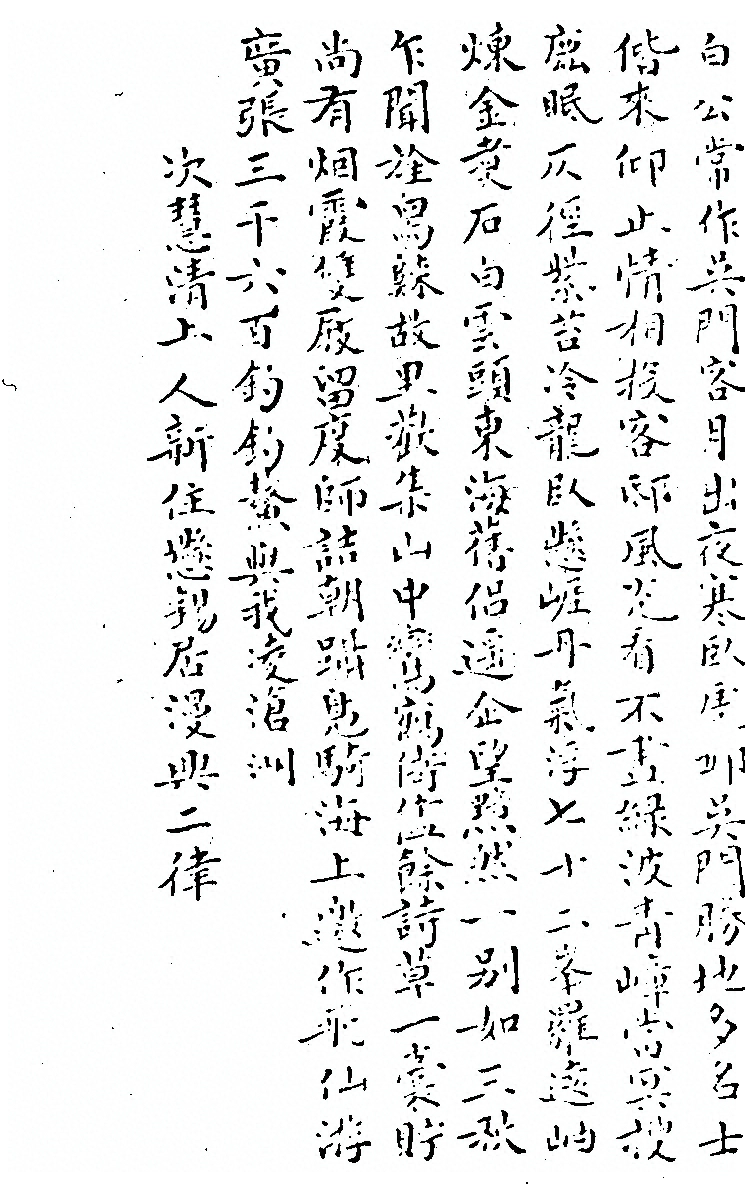 白公常作吳門客月出夜寒臥虎邱吳門勝地多名士
偕來仰止情相投客邸風光看不盡綠波青嶂當冥搜
鹿眠仄徑紫苔冷龍臥懸崖丹氣浮七十二峯羅遠岫
煉金煑石白雲頭東海舊侶遥企望黯然一別如三秋
乍聞旋舄穌故里歡集山中鸞鶴儔盍餘詩草一囊貯
尚有烟霞雙屐留度師詰朝躡鳧騎海上邀作飛仙游
廣張三千六百鈞釣鰲與我凌滄洲
次慧清上人新住懋錫居漫興二律